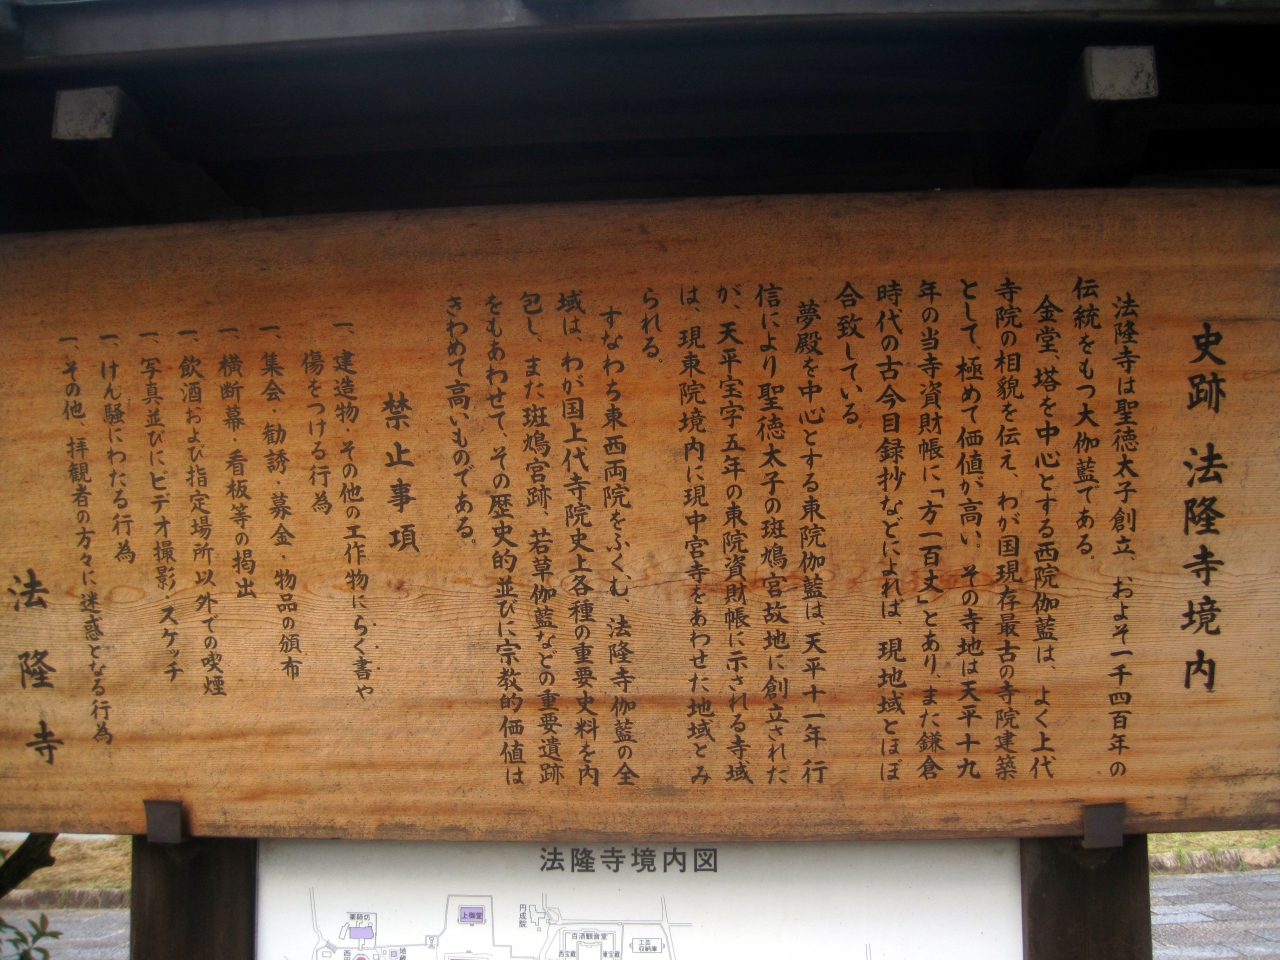 史跡 法隆寺境内
法隆寺は聖徳太子創立、およそ一千四百年の
伝統をもつ大伽藍である。
金堂、塔を中心とする西院伽藍は、よく上代
寺院の相貌を伝え、わが国現存最古の寺院建築
として、極めて価値が高い。その寺地は天平十九
年の当寺資財帳に「方一百丈」とあり、また鎌倉
時代の古今目録抄などによれば、現地域とほぼ
合致している。
夢殿を中心とする東院伽藍は、天平十一年行
信により聖徳太子の斑鳩宮故地に創立された
が、天平宝字五年の東院資財帳に示される寺域
は、現東院境内に現中宮寺をあわせた地域とみ
られる。
すなわち東西両院をふくむ、法隆寺伽藍の全
域は、わが国上代寺院史上各種の重要史料を内
包し、また斑鳩宮跡、若草伽藍などの重要遺跡
をもあわせて、その歴史的並びに宗教的価値は
きわめて高いものである。
禁止事項
一、建造物・その他の工作物にらく書や
傷をつける行為
一、集会・勧誘・募金・物品の頒布
一、横断幕・看板等の掲出
一、飲酒および指定場所以外での喫煙
一、写真並びにビデオ撮影 スケッチ
一、けん騒にわたる行為
一、その他、拝観者の方々に迷惑となる行為
法隆寺
法隆寺境内図
薬師坊
上御堂
円成院
百済観音堂
工芸収納庫
西宝蔵
東宝蔵
地蔵
西円